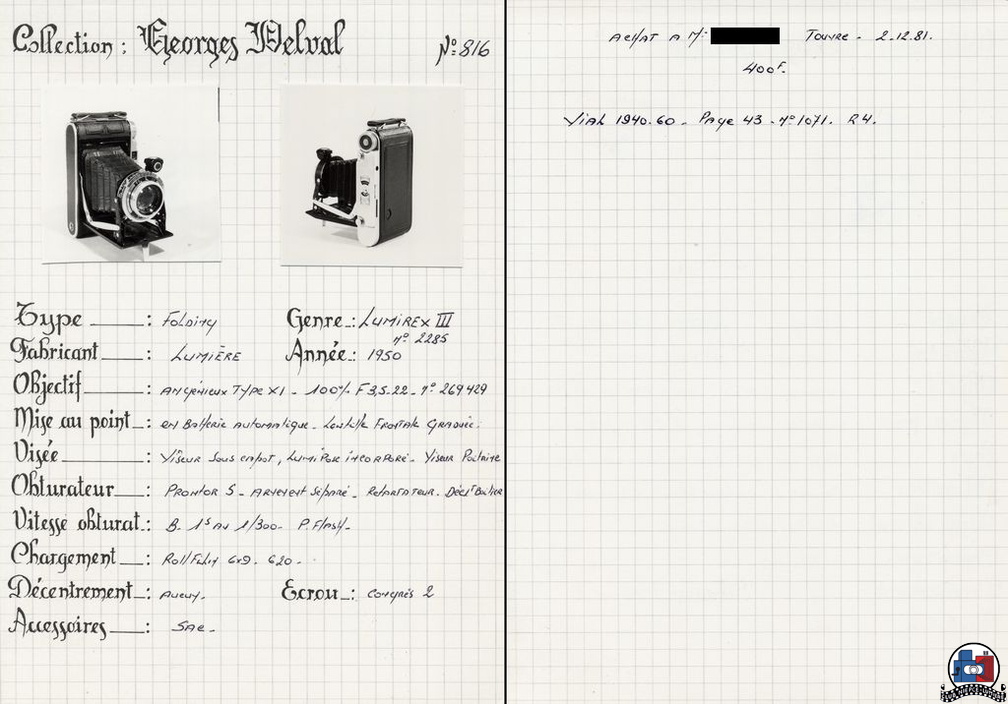 Collection : Georges Delval
N° 816
Type : Folding
Genre : Lumirex III
n° 2285
Fabricant : Lumière
Année : 1950
Objectif : Angénieux Type X1 - 100% F 3,5-22 - n° 269429
Mise au point : en Batterie automatique - Lentille Frontale Graduée.
Visée : Viseur sous capot, Lumipor incorporé - Viseur Poitrine
Obturateur : Prontor S - Armement séparé - Retardateur. Décl^t Boitier
Vitesse obturat. : B. 1s au 1/300 - P. Flash -
Chargement : Roll Film 6x9. 620 -
Décentrement : Aucun.
Ecrou : Congrès 2
Accessoires : Sac -
Achat a M: Touvre - 2.12.81.
400F.
Vial 1940.60 - Page 43 - n° 1071. R4.